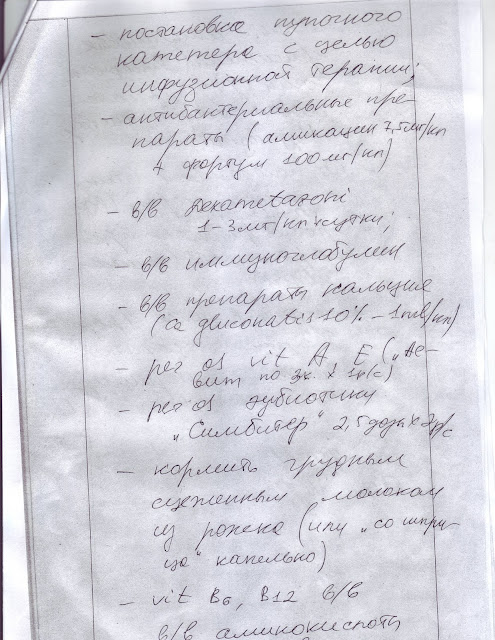 – постановка пупочного
катетера с целью
инфузионной терапии;
– антибактериальные пре-
параты (амикацин 7,5мг/кп
+ фортум 100мг/кп)
– в/в Дexametazoni
1-3мг/кп сутки;
– в/в иммуноглобулин
– в/в препараты кальция
(Ca gluconatis 10% – 1ml/кп)
– per os vit A, E („Ае-
вит" по 3к. x 1р/с)
– per os эубиотики
„Симбитер" 2,5 доза x 2р/с
– кормить грудным
сцеженным молоком
из рожка (или „со шпри-
ца" капельно)
– vit B6, B12 в/в
в/в аминокислоты